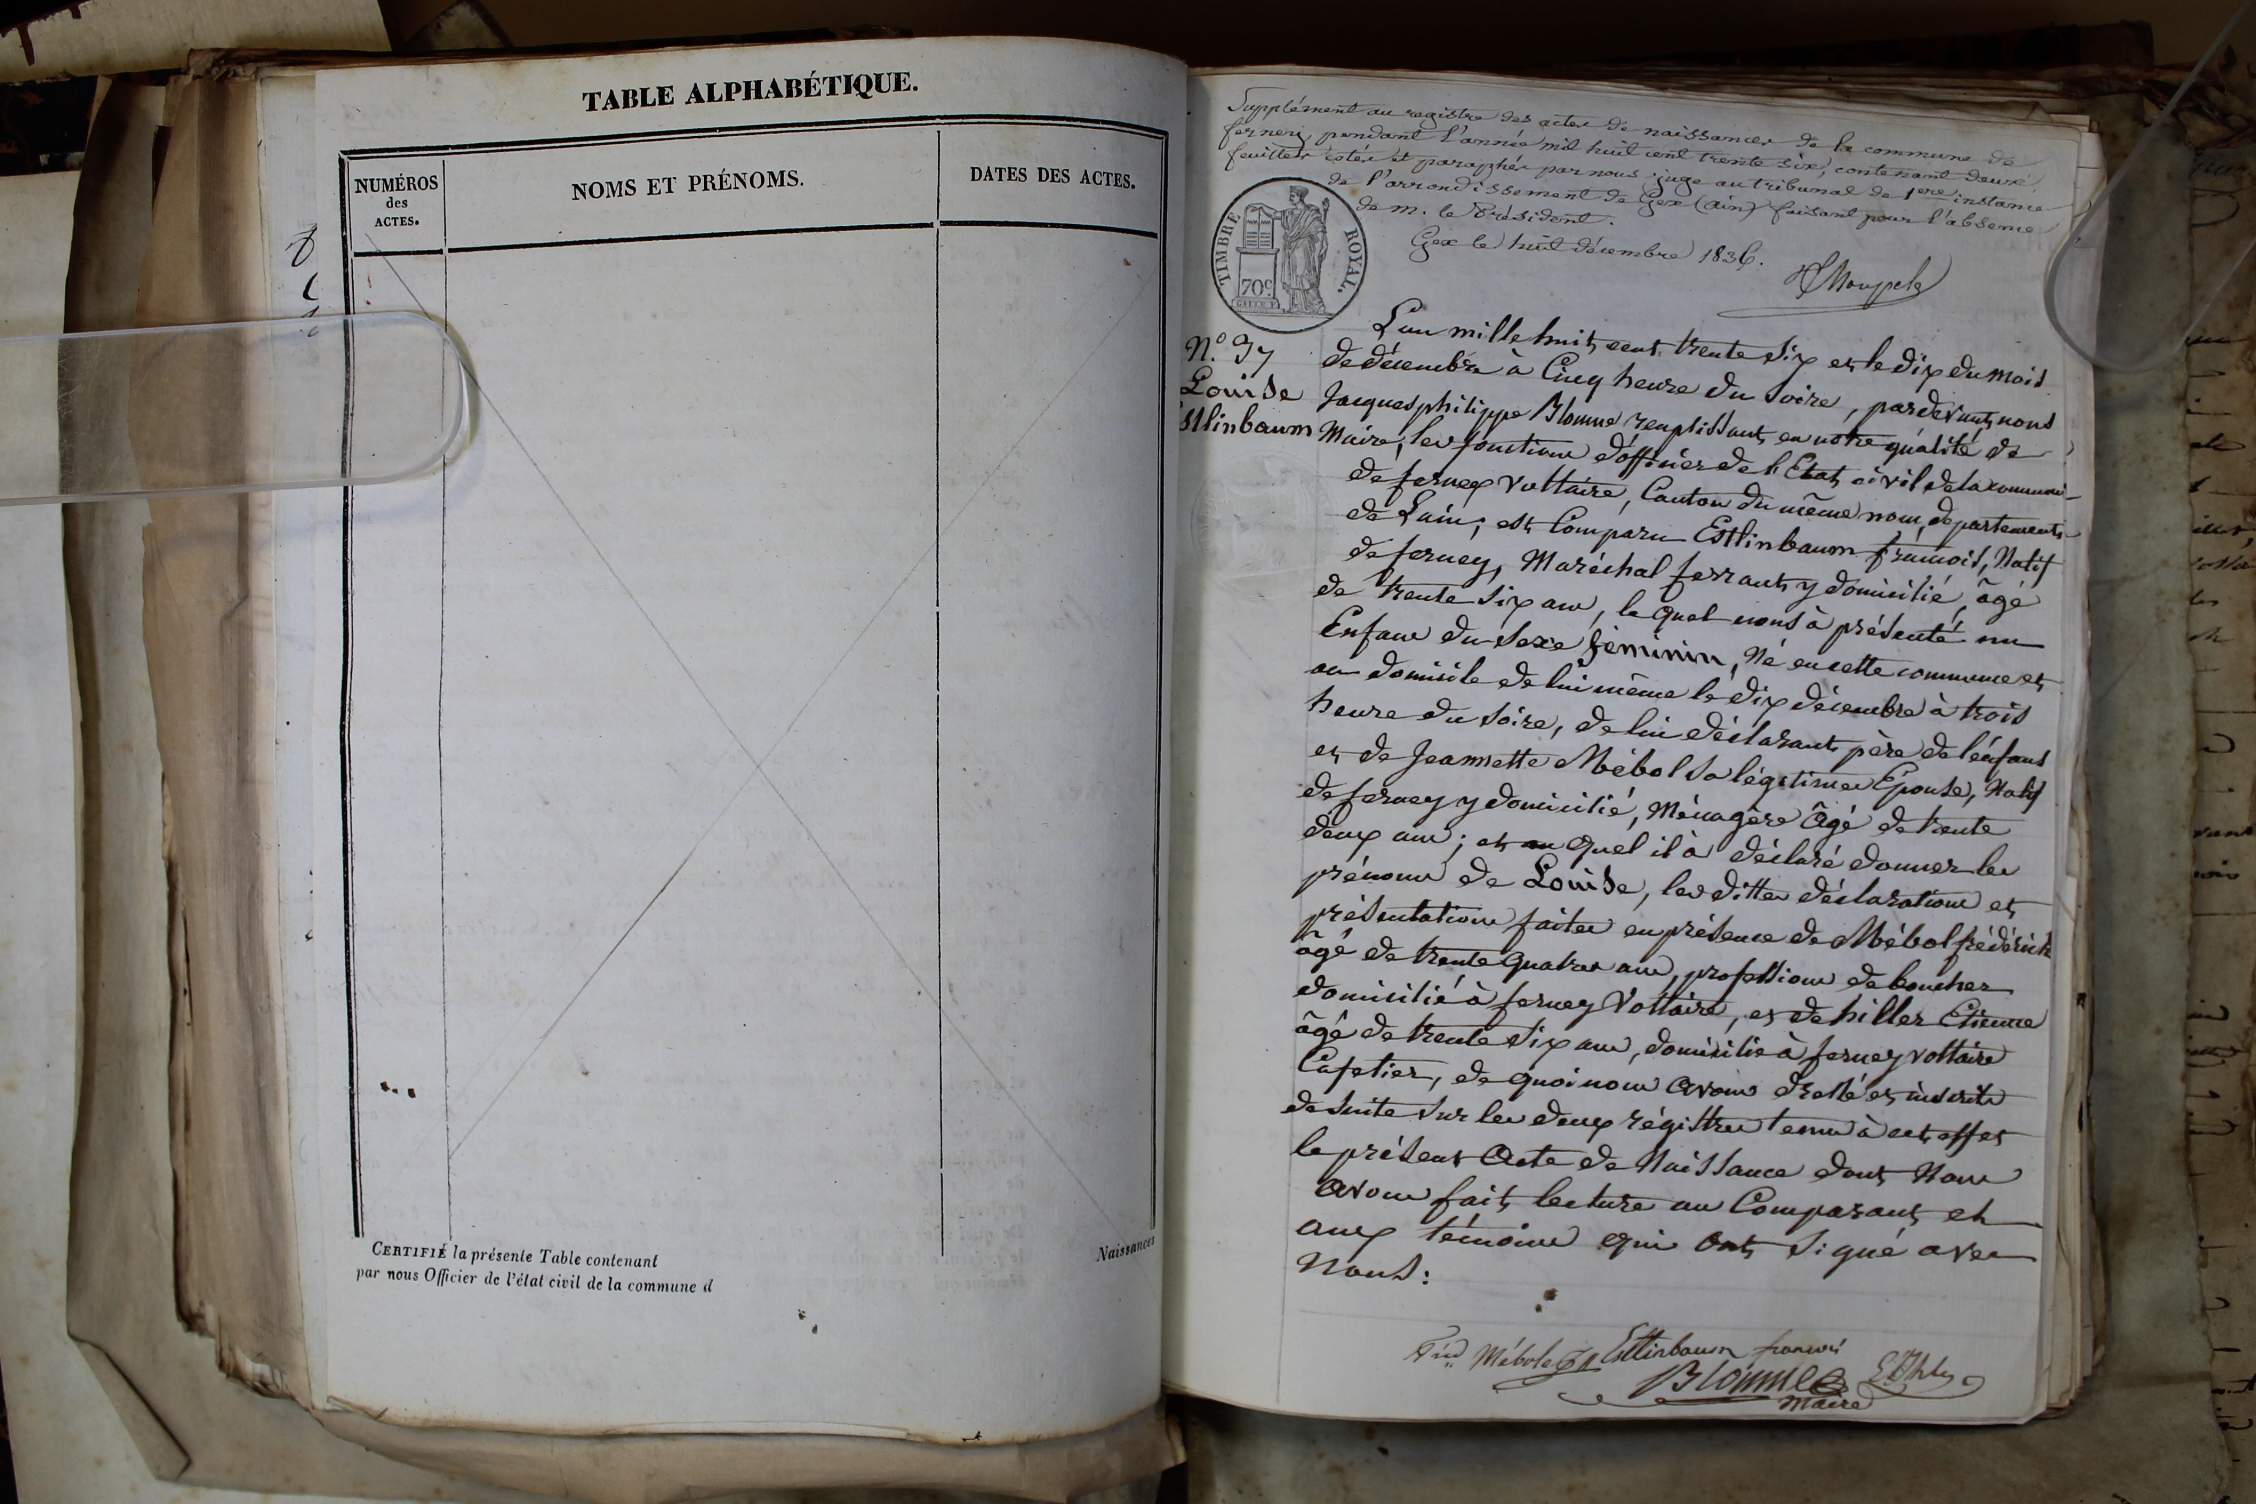 TABLE ALPHABÉTIQUE.
NUMÉROS
des
ACTES.
NOMS ET PRÉNOMS.
DATES DES ACTES.
CERTIFIÉ la présente Table contenant
Naissances
par nous Officier de l'état civil de la commune d
Supplément au registre des actes de naissances de la commune de
ferney, pendant l'année mil huit cent trente six, contenant deux
feuilles cotés et paraphés par nous juge au tribunal de 1ere instance
de l'arrondissement de Gex (ain) faisant pour l'absence
de m. le Président.
Gex le huit décembre 1836.
TIMBRE ROYAL.
70c
N.o 37
Louise
Estlinbaum
L'an mille huit cent trente six et le dix du mois
de décembre à Cinq heure du soire, pardevant nous
Jacques philippe Blonne remplissant en notre qualité de
Maire, les fonctions d'officier de l'Etat civil de la commune
de ferney Voltaire, Canton du même nom, departement
de Lain; est Comparu Estlinbaum francois, Natif
de ferney, Maréchal ferrant y domicilié, âgé
de trente six ans, le quel nous à présenté un
Enfant du sexe féminin, Né en cette commune et
au domicile de lui même le dix décembre à trois
heure du soire, de lui déclarant père de l'énfant
et de Jeannette Mébol sa légitime Epouse, Natif
de ferney y domicilié, Ménagère âgé de trente
deux ans; et au quel il à déclaré donner les
prénoms de Louise, les dittes déclarations et
présentations faites en présence de Mébol frédérick
âgé de trente quatres ans, profession de boucher
domicilié à ferney Voltaire, et de hiller Etienne
âgé de trente six ans, domicilié à ferney voltaire
Cafetier, de quoi nous avons dressé et inscrite
de suite sur les deux régistres tenus à cet effet
le présent Acte de Naissance dont Nous
avons fait lecture au Comparant et
aux témoins qui ont signé avec
Nous:
Mébole Estlinbaum francois
Blonne
Maire